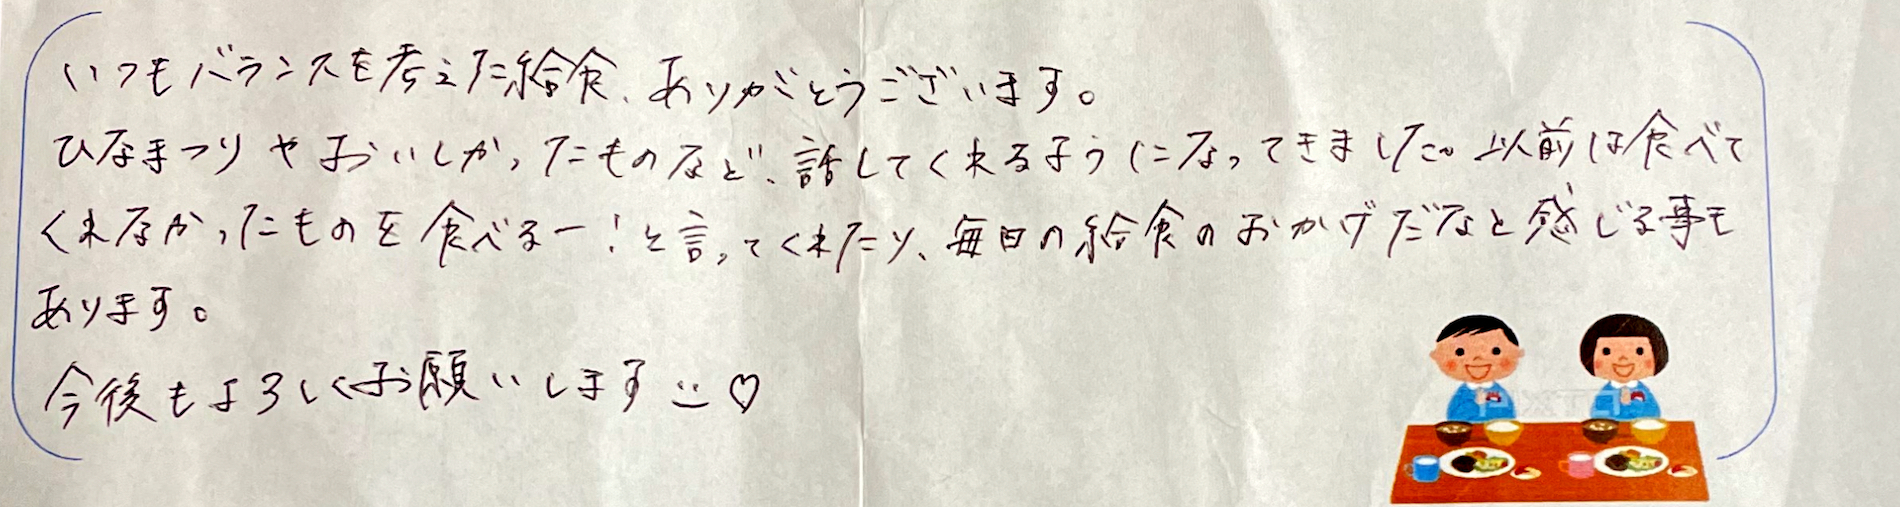 いつもバランスを考えた給食、ありがとうございます。
ひなまつりやおいしかったものなど、話してくれるようになってきました。以前は食べて
くれなかったものを食べるー！と言ってくれたり、毎日の給食のおかげだなと感じる事も
あります。
今後もよろしくお願いします ♡